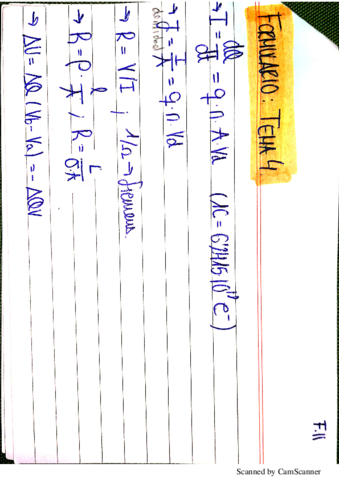 F.II
FORMULARIO: TEMA 4
→ I = dQ/dt = q·n·A·Vd (1C = 6'2415·10¹⁸ e⁻)
→ J = I/A = q·n·Vd
densidad
→ R = V/I ; 1/Ω → Siemens
→ R = ρ·l/A ; R = L/σ·A
→ ΔU = ΔQ (Vb - Va) = -ΔQV
Scanned by CamScanner